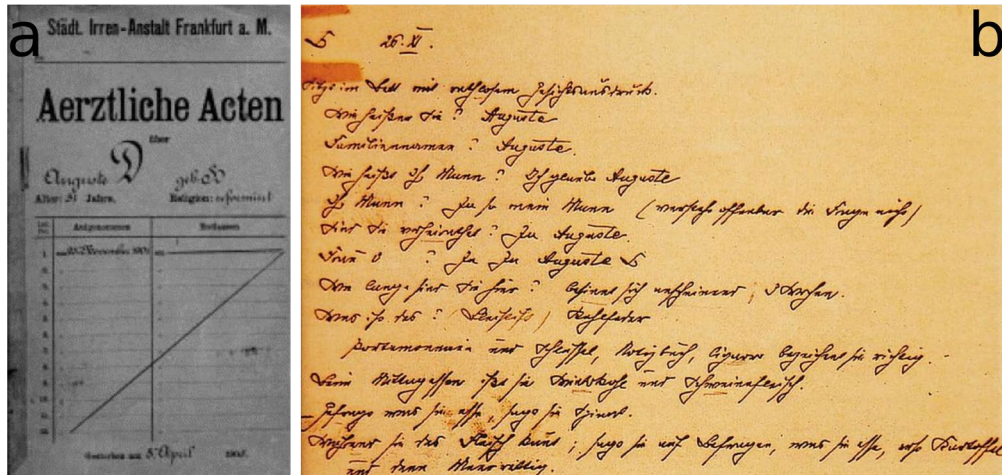 a
Städt. Irren-Anstalt Frankfurt a. M.
Aerztliche Acten
über
Auguste D geb.
Alter: 51 Jahre. Religion: reformirt
Aufgenommen Entlassen
1. 25. November 1901
2.
3.
4.
5.
6.
7.
8.
9.
10.
11.
12.
Gestorben am 8. April 190
b
26. XI.
Sitzt im Bett mit rathlosem Gesichtsausdruck.
Wie heissen Sie? Auguste
Familienname? Auguste.
Wie heisst Ihr Mann? Ich glaube Auguste
Ihr Mann? Ja so mein Mann (versteht offenbar die Frage nicht)
Sind Sie verheirathet? Ja Auguste.
Frau D? Ja Ja Auguste D
Wie lange sind Sie hier? besinnt sich anscheinend, 3 Wochen.
Was ist das? (Bleistift)
Portemonnaie und Schlüssel, Notizbuch, Cigarre bezeichnet sie richtig.
Beim Mittagessen isst sie und Schweinefleisch.
Gefragt was sie esse, sagt sie Spinat.
Während sie das Fleisch kaut; sagt sie auf Befragen, was sie esse, erst Kartoffel
und dann Meerrettig.